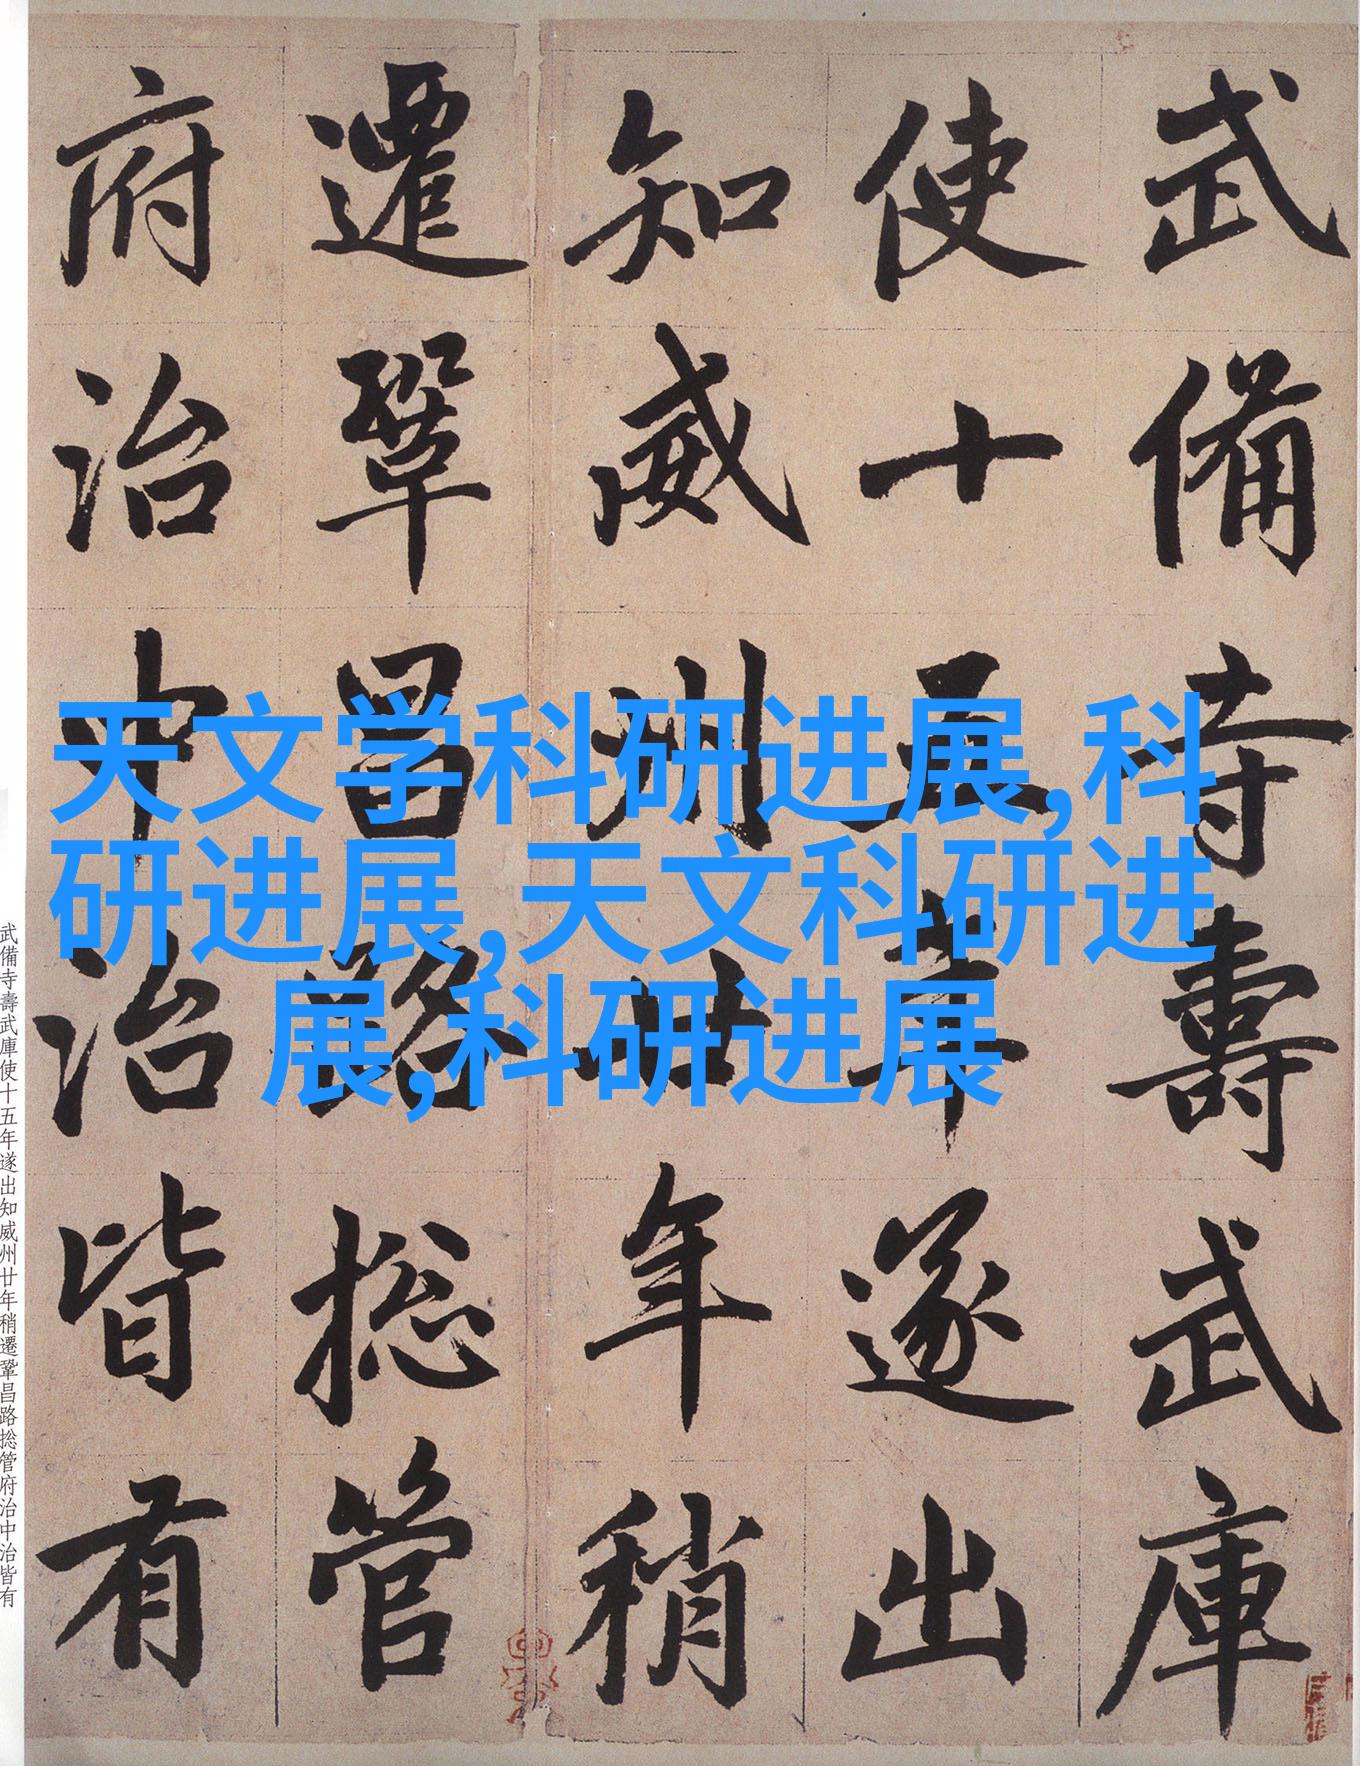 武備寺壽武庫
使十五年遂出
知威州廿年稍
遷鞏昌路捴管
府治中治皆有
天文学科研进展,科
研进展,天文科研进
展,科研进展
武備寺壽武庫使十五年遂出知威州廿年稍遷鞏昌路捴管府治中治皆有